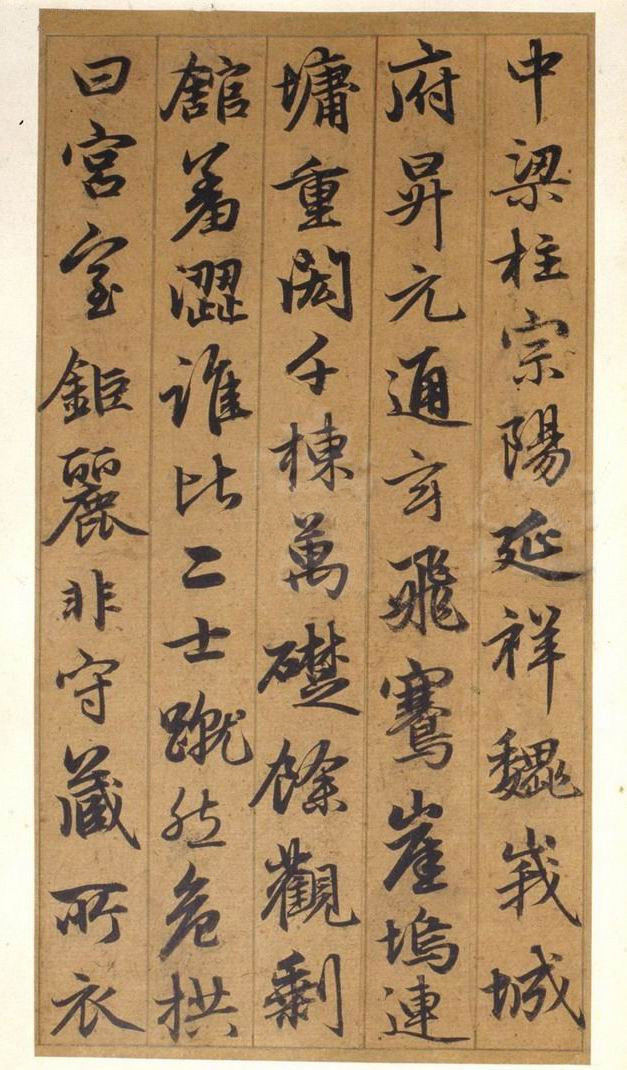 中梁柱宗陽延祥魏峩城
府昇元通玄飛鶱崖塢連
墉重閎千棟萬礎餘觀剩
舘羞澀誰比二士蹴然危拱
曰宮室鉅麗非守藏所衣